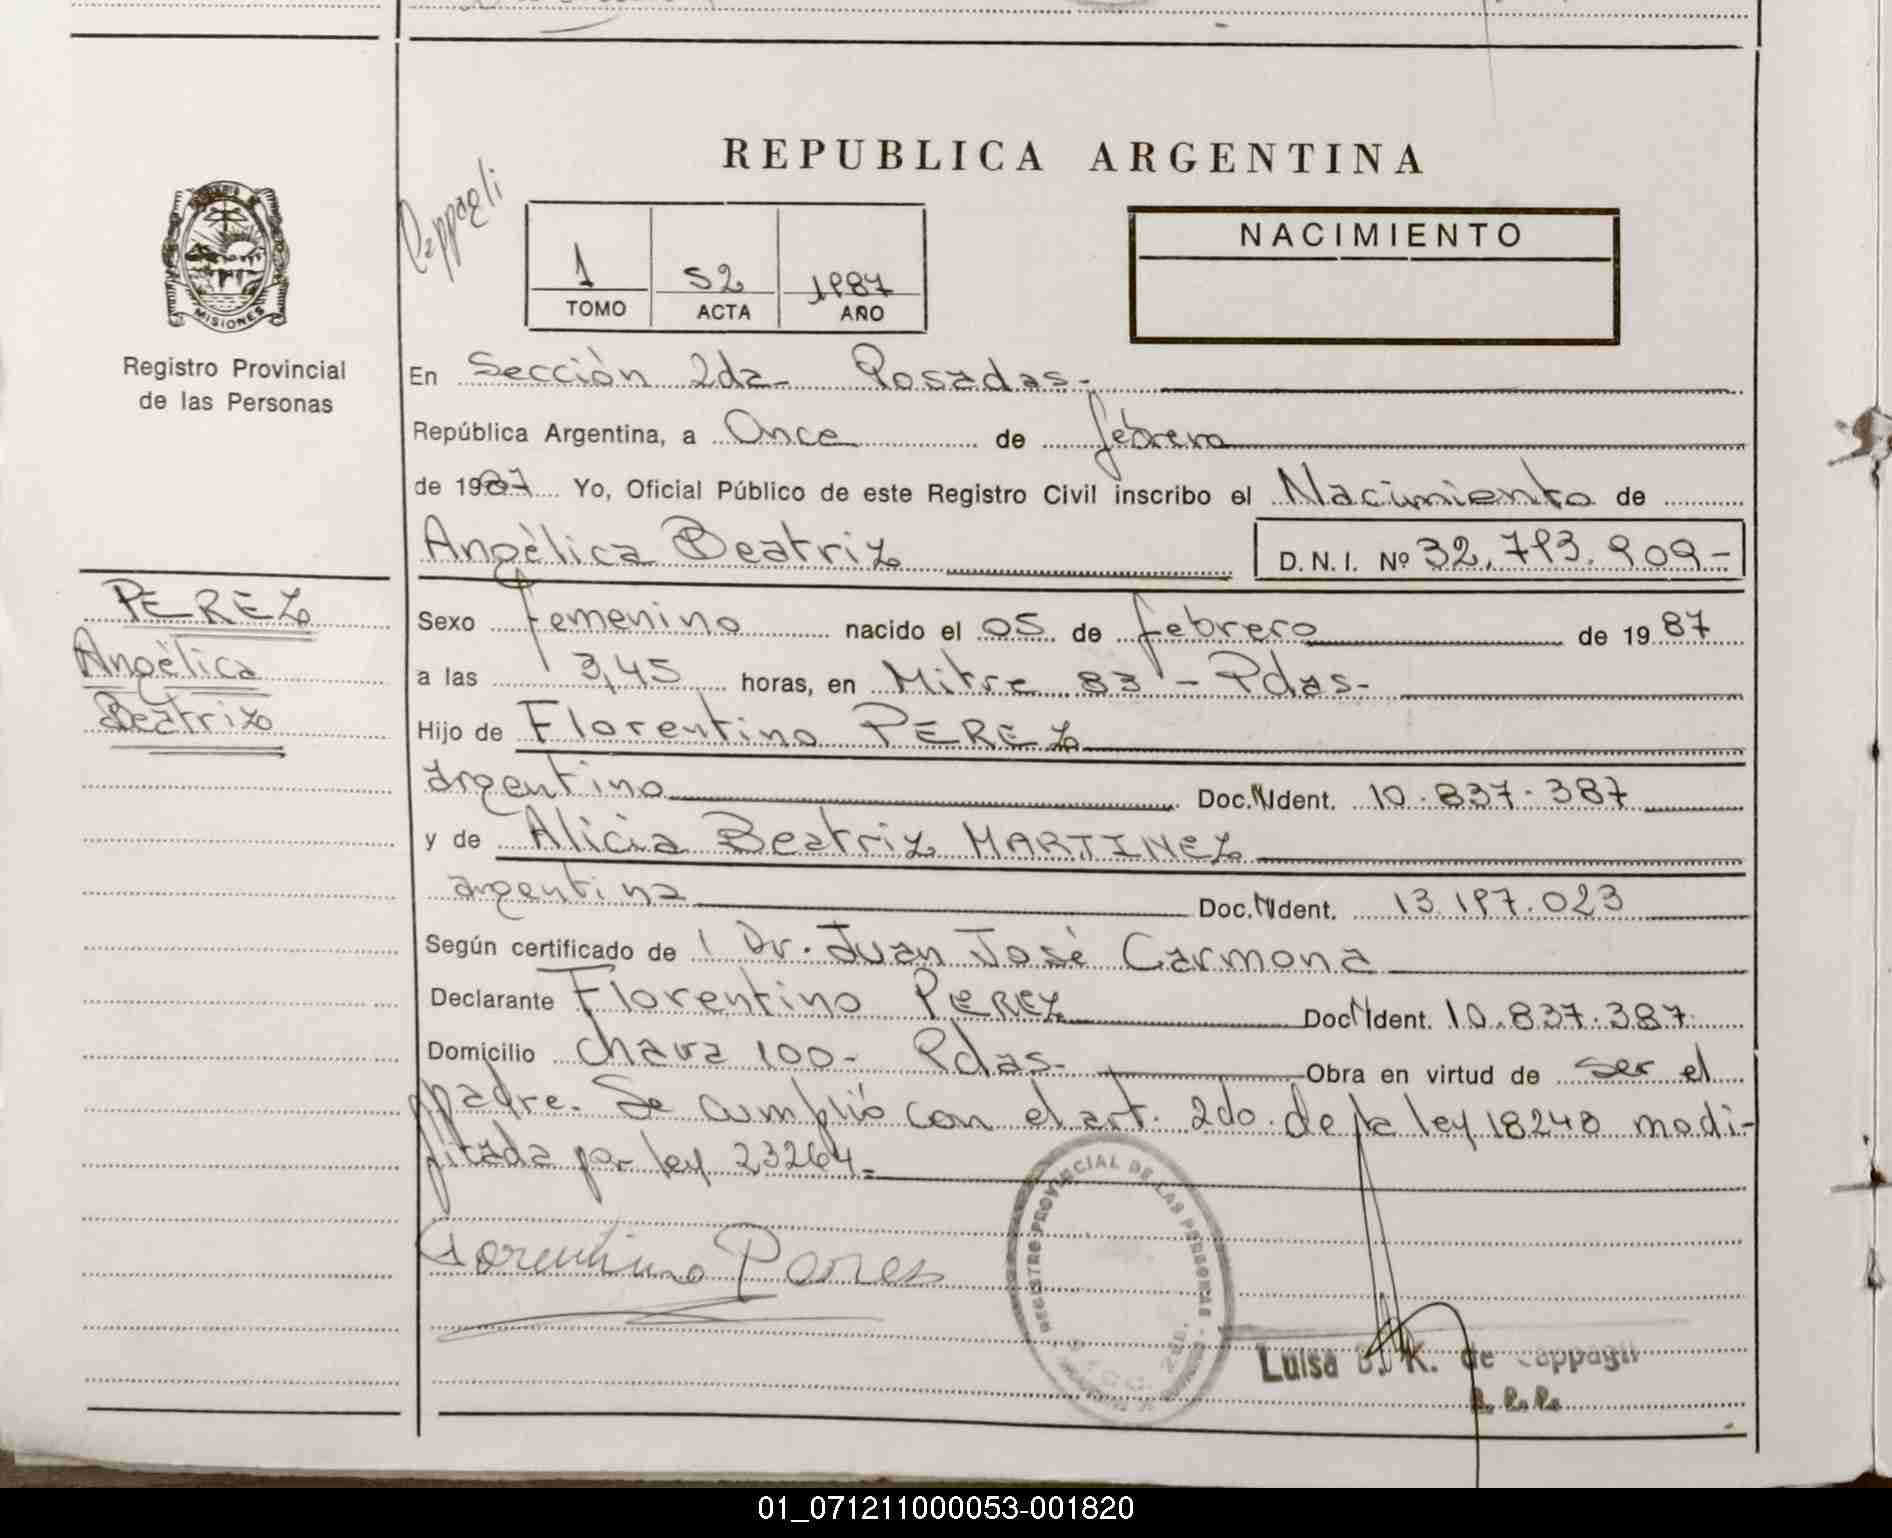 REPUBLICA ARGENTINA
Cappagli
1 52 1987
TOMO ACTA AÑO
NACIMIENTO
MISIONES
Registro Provincial
de las Personas
En Sección 2da- Posadas-
República Argentina, a Once de febrero
de 1987 Yo, Oficial Público de este Registro Civil inscribo el Nacimiento de
Angèlica Beatriz D.N.I. Nº 32.793.909-
PEREZ
Angèlica
Beatriz
Sexo femenino nacido el 05 de febrero de 1987
a las 3,45 horas, en Mitre 83 - Pdas-
Hijo de Florentino PEREZ
argentino Doc. Ident. 10.837.387
y de Alicia Beatriz MARTINEZ
argentina Doc. Ident. 13.197.023
Según certificado de Dr. Juan José Carmona
Declarante Florentino PEREZ Doc Ident. 10.837.387
Domicilio chava 100- Pdas- Obra en virtud de ser el
padre. Se cumplió con el art. 2do. de la ley 18248 modi-
ficada por ley 23264.=
Florentino Peres
REGISTRO PROVINCIAL DE LAS PERSONAS
Luisa K. de Cappagli
01_071211000053-001820